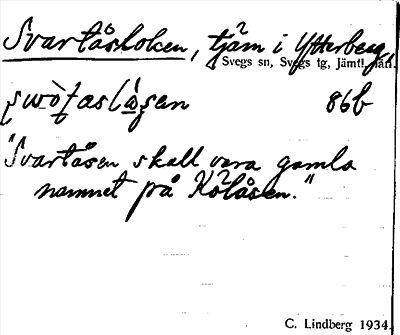 Svartåsloken, tjärn i Ytterberg,
Svegs sn, Svegs tg, Jämtl. län.
86b
"Svartåsen skall vara gamla
namnet på Kölåsen."
C. Lindberg 1934.